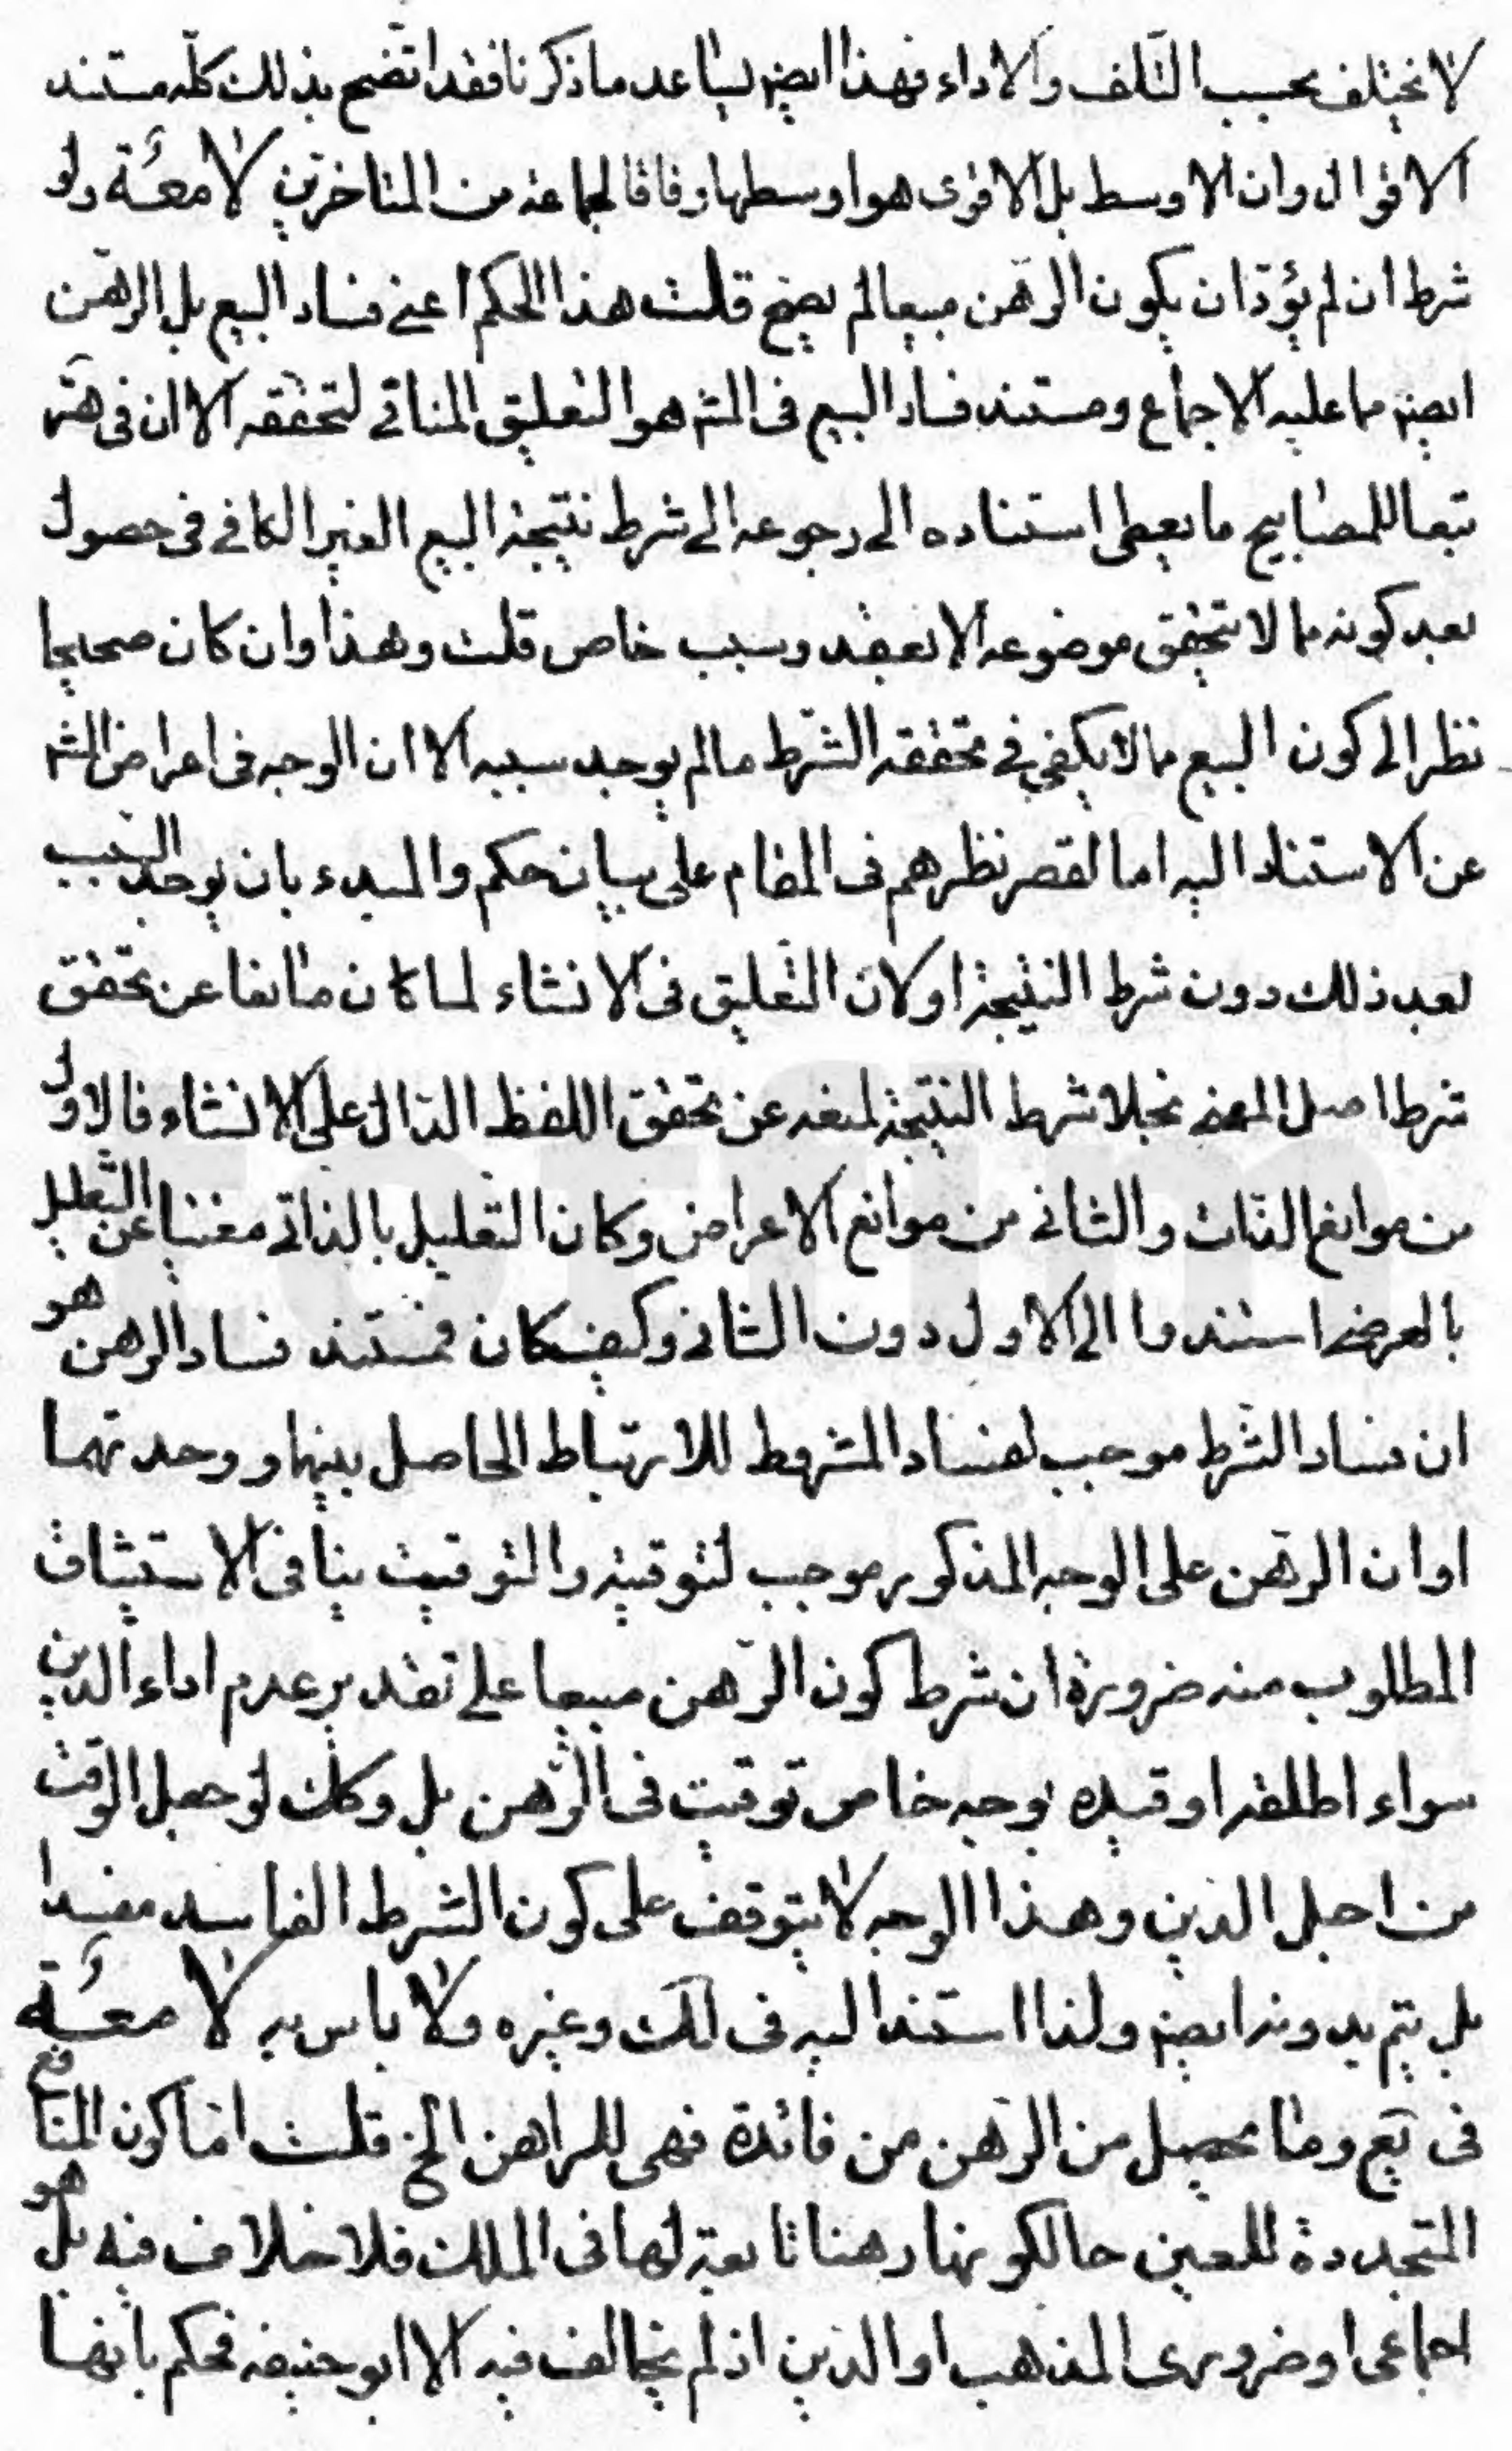 لا يختلف بحسب التلف والاداء فهذا ايضا يساعد ما ذكرنا فقد اتضح بذلك كله مستند
الاقوال وان الاوسط بل الاقوى هو اوسطها وفاقا لجماعة من المتاخرين لا معة ولو
شرط ان لم يؤد ان يكون الرهن مبيعا لم يصح قلت هذا الحكم اعنى فساد البيع بل الرهن
ايضا مما عليه الاجماع ومستند فساد البيع فى المش هو التعليق المنافى لتحققه الا ان فى
تبعا للمصابيح ما يعطى استناده الى رجوعه الى شرط نتيجة البيع الغير الكافى فى حصول
بعد كونه مما لا يتحقق موضوعه الا بعقد وسبب خاص قلت وهذا وان كان صحيحا
نظرا الى كون البيع مما لا يكفى فى تحققه الشرط ما لم يوجد سببه الا ان الوجه فى اعراض المش
عن الاستناد اليه اما لقصر نظرهم فى المقام على بيان حكم بان يوجد السبب
بعد ذلك دون شرط النتيجة او لان التعليق فى الانشاء لما كان مانعا عن تحقق
شرط اصل المعنى بخلاف شرط النتيجة لمنعه عن تحقق اللفظ الدال على الانشاء فالاول
من موانع الذات والثانى من موانع الاعراض وكان التعليل بالذاتى مغنيا عن التعليل
بالعرضى استندوا الى الاول دون الثانى وكيف كان فمستند فساد الرهن هو
ان فساد الشرط موجب لفساد المشروط للارتباط الحاصل بينهما ووحدتهما
او ان الرهن على الوجه المذكور موجب لتوقيته والتوقيت ينافى الاستيثاق
المطلوب منه ضرورة ان شرط كون الرهن مبيعا على تقدير عدم اداء الدين
سواء اطلقه او قيده بوجه خاص توقيت فى الرهن بل وكك لو جعل الوقت
من اجل الدين وهذا الوجه لا يتوقف على كون الشرط الفاسد مفسدا
بل يتم بدونه ايضا ولذا استند اليه فى لك وغيره ولا باس به لا معة
فى يع وما يحصل من الرهن من فائدة فهى للراهن الخ قلت اما كون المنافع
المتجددة للعين حال كونها رهنا تابعة لها فى الملك فلا خلاف فيه بل هو
اجماعى او ضرورى المذهب او الدين اذ لم يخالف فيه الا ابو حنيفة فحكم بانها